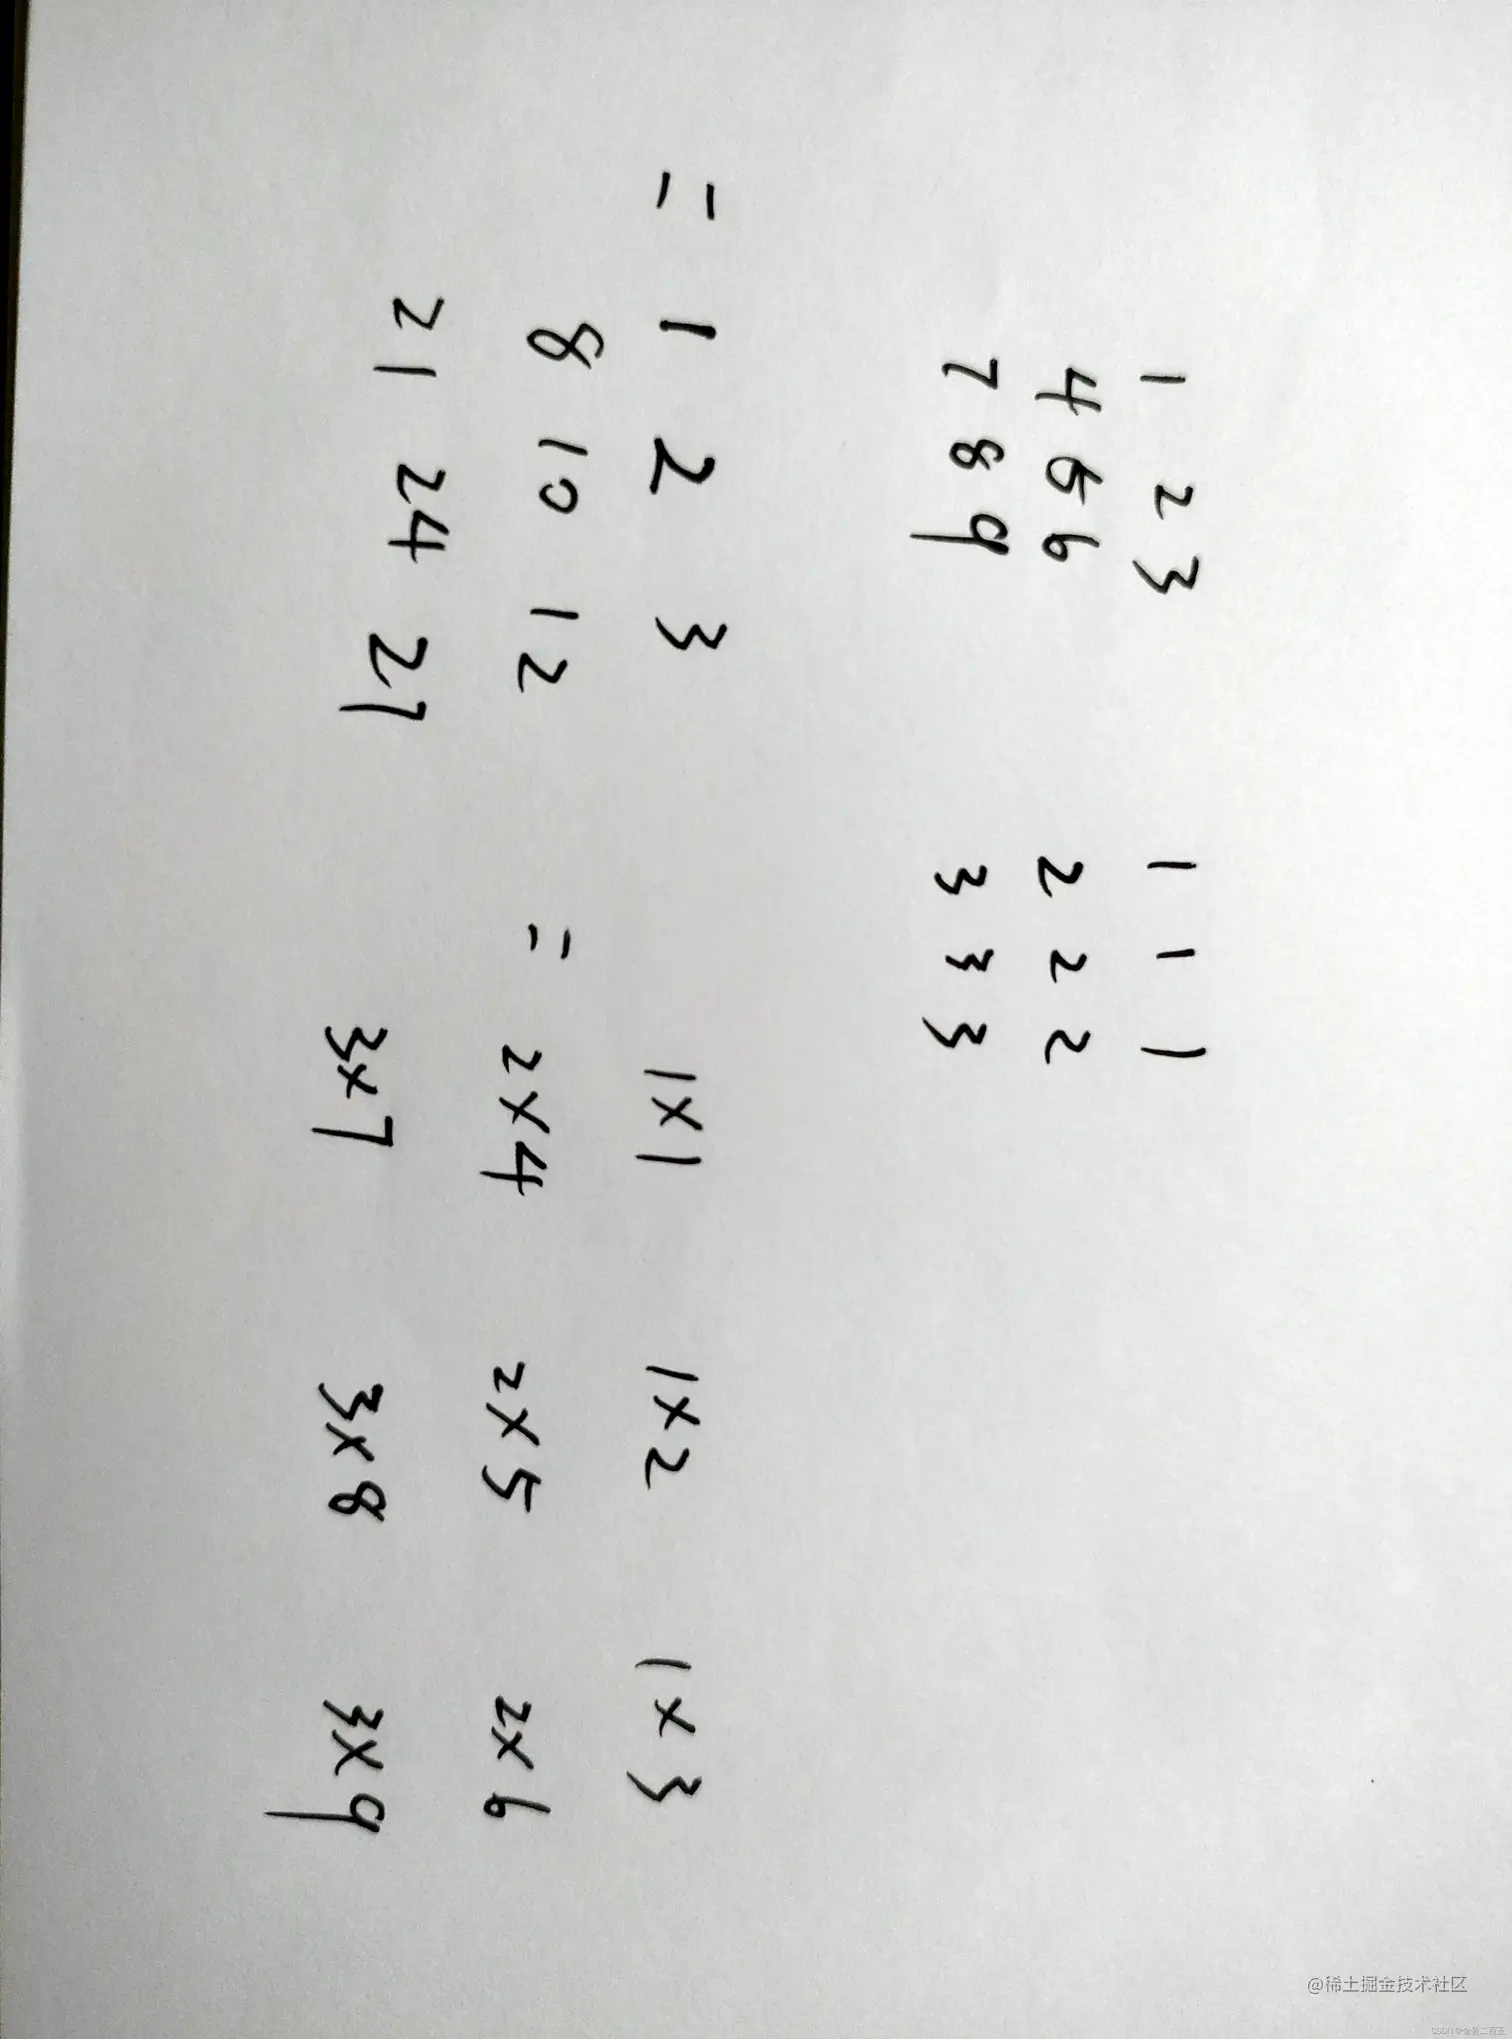 1 2 3 1 1 1
4 5 6 2 2 2
7 8 9 3 3 3
= 1 2 3 1×1 1×2 1×3
8 10 12 = 2×4 2×5 2×6
21 24 27 3×7 3×8 3×9
@稀土掘金技术社区